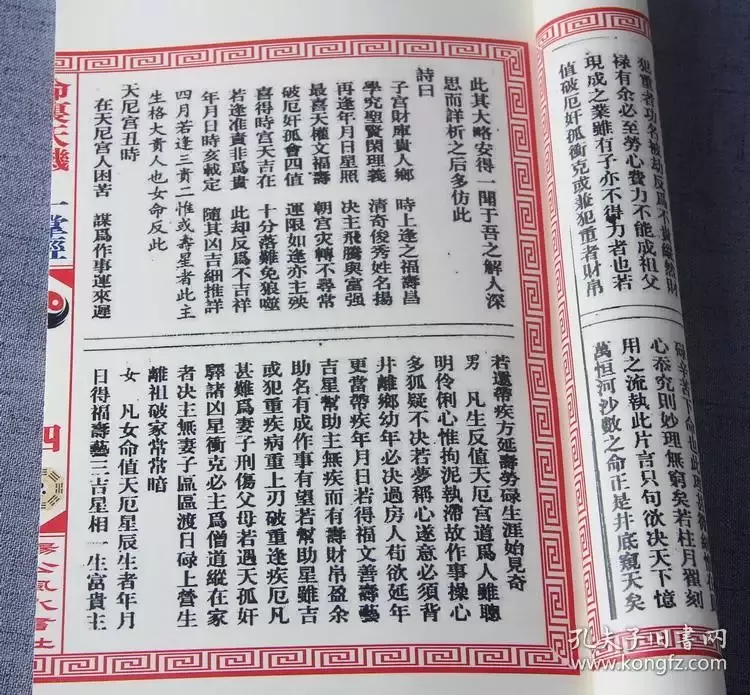 犯重者功名被劫反爲不貴縱然財
祿有余必至勞心費力不能成祖父
現成之業雖有子亦不得力者也若
值破厄奸孤衝克或兼犯重者財帛
碌辛苦下命也此
心忝究則妙理無窮矣若柱月瞿刻
用之流執此片言只句欲決天下憶
萬恒河沙數之命正是井底窺天矣
此其大略安得一聞于吾之解人深
思而詳析之后多仿此
詩曰
子宮財庫貴人鄉 時上逢之福壽昌
學究聖賢閑理義 清奇俊秀姓名揚
再逢年月日星照 决主飛騰與富强
最喜天權文福壽 朝宮灾轉不尋常
破厄奸孤會四值 運限如逢亦主殃
喜得時宮天吉在 十分落難免狼噬
若逢准責非爲貴 此却反爲不吉祥
年月日時亥載定 隨其凶吉細推詳
四月若逢三責二惟或壽星者此主
生格大責人也女命反此
天厄宮丑時
在天厄宮人困苦 謀爲作事運來遲
若還帶疾方延壽勞碌生涯始見奇
男 凡生反值天厄宮道爲人雖聰
明伶俐心惟拘泥執滯故作事操心
多狐疑不决若夢稱心遂意必須背
井離鄉幼年必决過房人苟欲延年
更當帶疾年月日若得福文善壽藝
吉星幫助主無疾而有壽財帛盈余
助名有成作事有望若幫助星雖吉
或犯重疾病重上刃破重逢疾厄凡
甚難爲妻子刑傷父母若過天孤奸
驛諸凶星衝克必主爲僧道縱在家
者决主無妻子區區渡日碌上營生
離祖破家常常暗
女 凡女命值天厄星辰生者年月
日得福壽藝三吉星相一生富貴主
命裏天機 一掌經
四